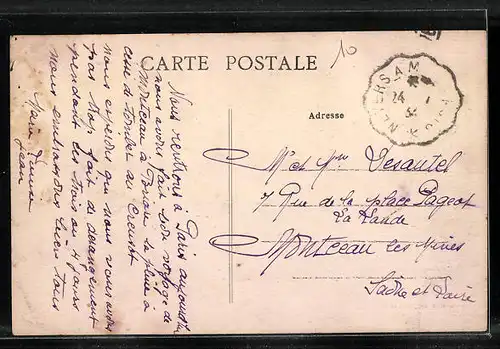 CARTE POSTALE
10
NEVERS A M
24
34
Adresse
Nous rentrons à Paris aujourd'hui
nous avons fait bon voyage de
Montceau à Paris la pluie a
cessé de tomber au Creusot
nous espérons que nous vous avons
pas trop fait de dérangement
pendant les trois ou 4 jours
nous embrassons bien tous
Jean
M et Mme Desautel
7 Rue de la place Pageot
La Lande
Montceau les Mines
Saône et Loire